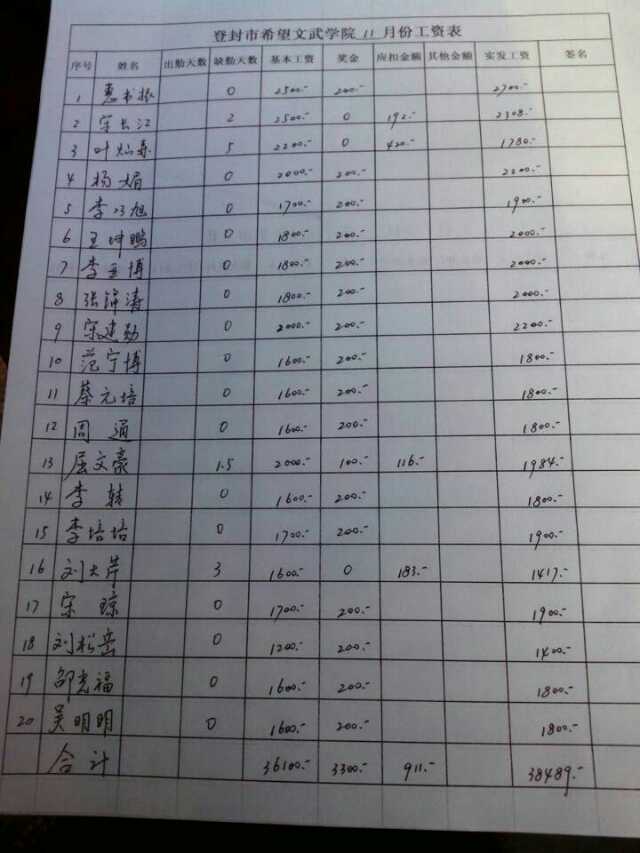 登封市希望文武学院 11 月份工资表
序号 姓名 出勤天数 缺勤天数 基本工资 奖金 应扣金额 其他金额 实发工资 签名
1 惠书振 0 2500.- 200.- 2700.-
2 宋长江 2 2500.- 0 192.- 2308.-
3 叶灿森 5 2200.- 0 420.- 1780.-
4 杨娟 0 2000.- 200.- 2200.-
5 李旭 0 1700.- 200.- 1900.-
6 王坤鹏 0 1800.- 200.- 2000.-
7 李博 0 1800.- 200.- 2000.-
8 张锦涛 0 1800.- 200.- 2000.-
9 宋建勋 0 2000.- 200.- 2200.-
10 范宁博 0 1600.- 200.- 1800.-
11 蔡元培 0 1600.- 200.- 1800.-
12 周通 0 1600.- 200.- 1800.-
13 屈文豪 1.5 2000.- 100.- 116.- 1984.-
14 李转 0 1600.- 200.- 1800.-
15 李培培 0 1700.- 200.- 1900.-
16 刘大 3 1600.- 0 183.- 1417.-
17 宋琼 0 1700.- 200.- 1900.-
18 刘松岳 0 1200.- 200.- 1400.-
19 邵光福 0 1600.- 200.- 1800.-
20 吴明明 0 1600.- 200.- 1800.-
合计 36100.- 3300.- 911.- 38489.-